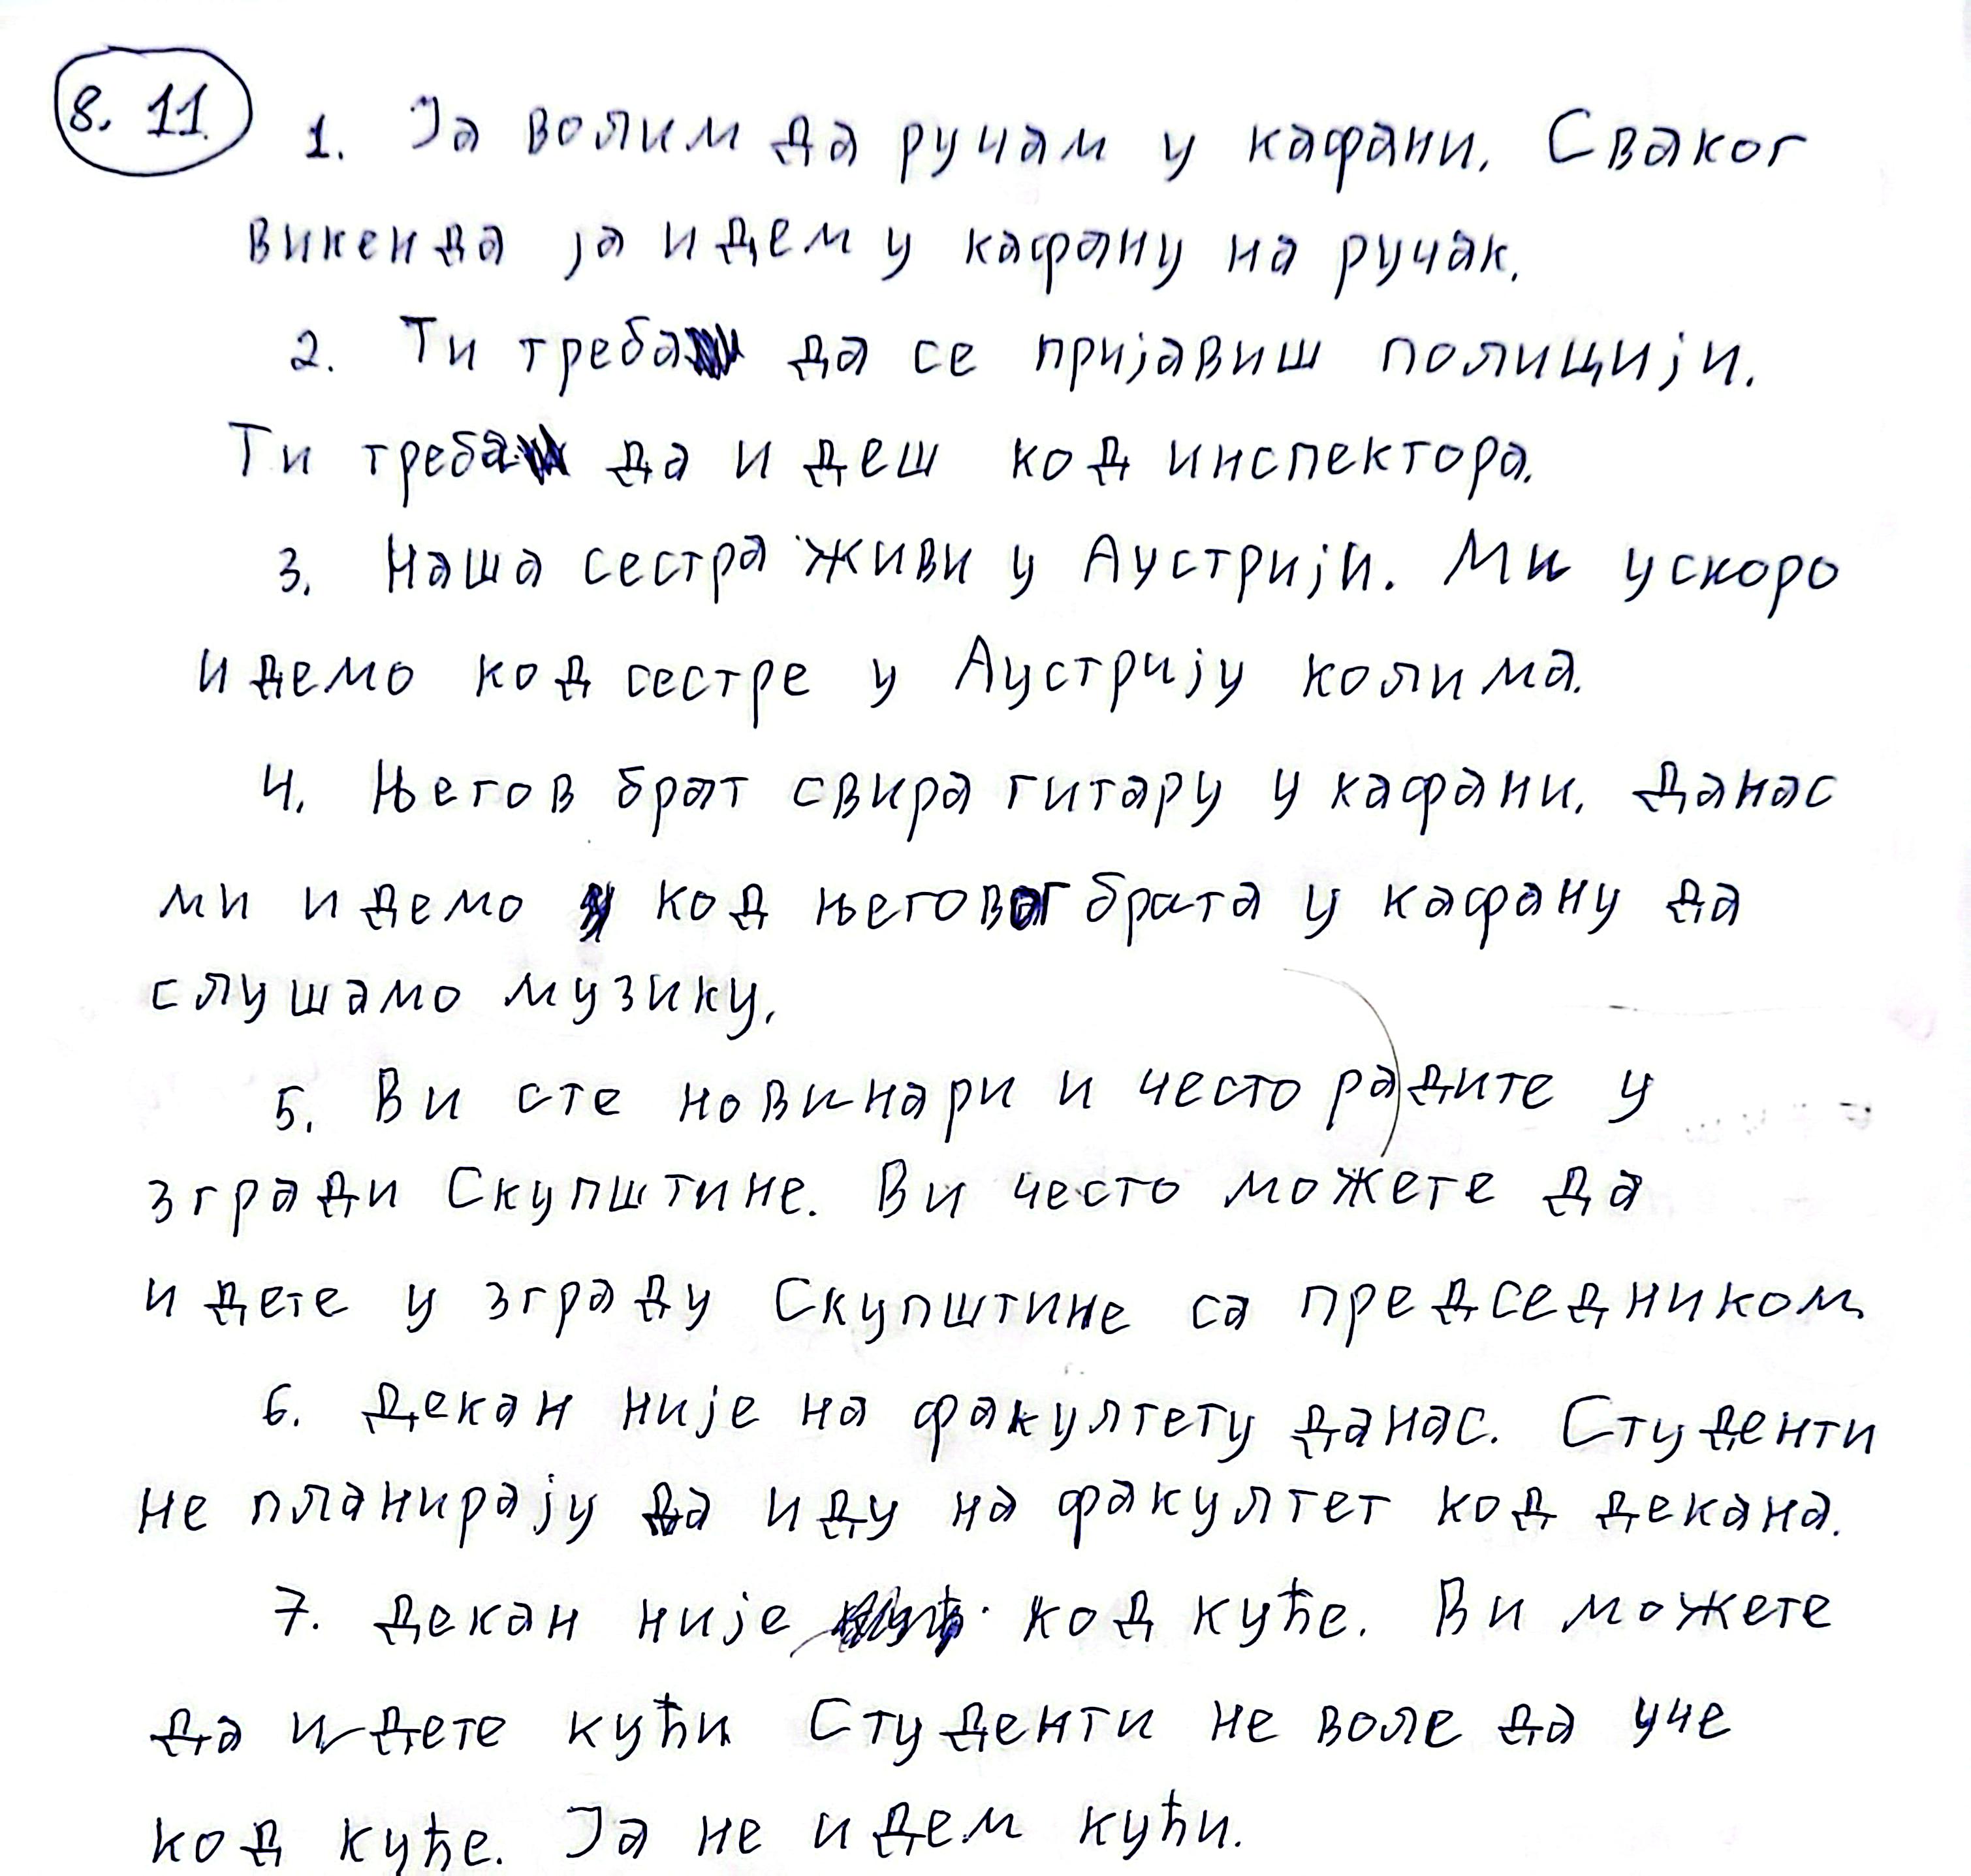 8. 11. 1. Ја волим да ручам у кафани. Сваког
викенда ја идем у кафану на ручак.
2. Ти треба да се пријавиш полицији.
Ти треба да идеш код инспектора.
3. Наша сестра живи у Аустрији. Ми ускоро
идемо код сестре у Аустрију колима.
4. Његов брат свира гитару у кафани. Данас
ми идемо код његовог брата у кафану да
слушамо музику.
5. Ви сте новинари и често радите у
згради Скупштине. Ви често можете да
идете у зграду Скупштине са председником
6. Декан није на факултету данас. Студенти
не планирају да иду на факултет код декана.
7. Декан није код куће. Ви можете
да идете кући Студенти не воле да уче
код куће. Ја не идем кући.